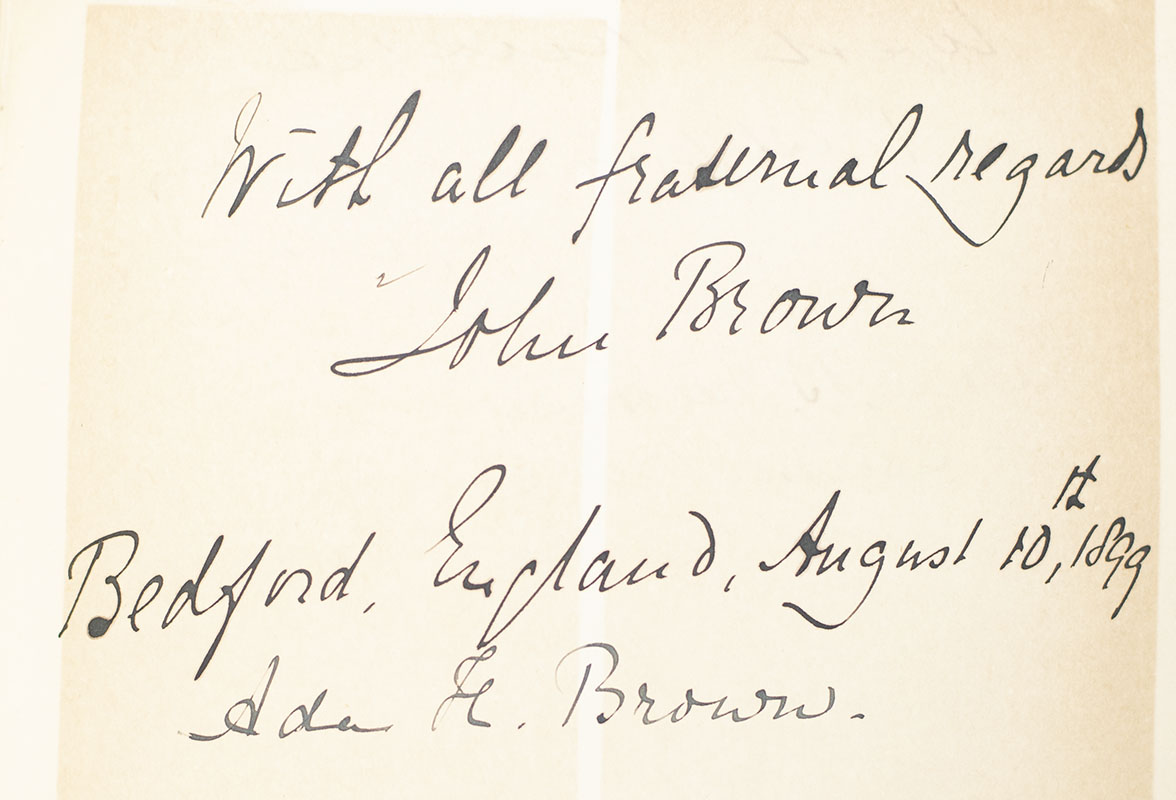 With all fraternal regards
John Brown
Bedford, England, August 10th, 1899
Ada H. Brown.